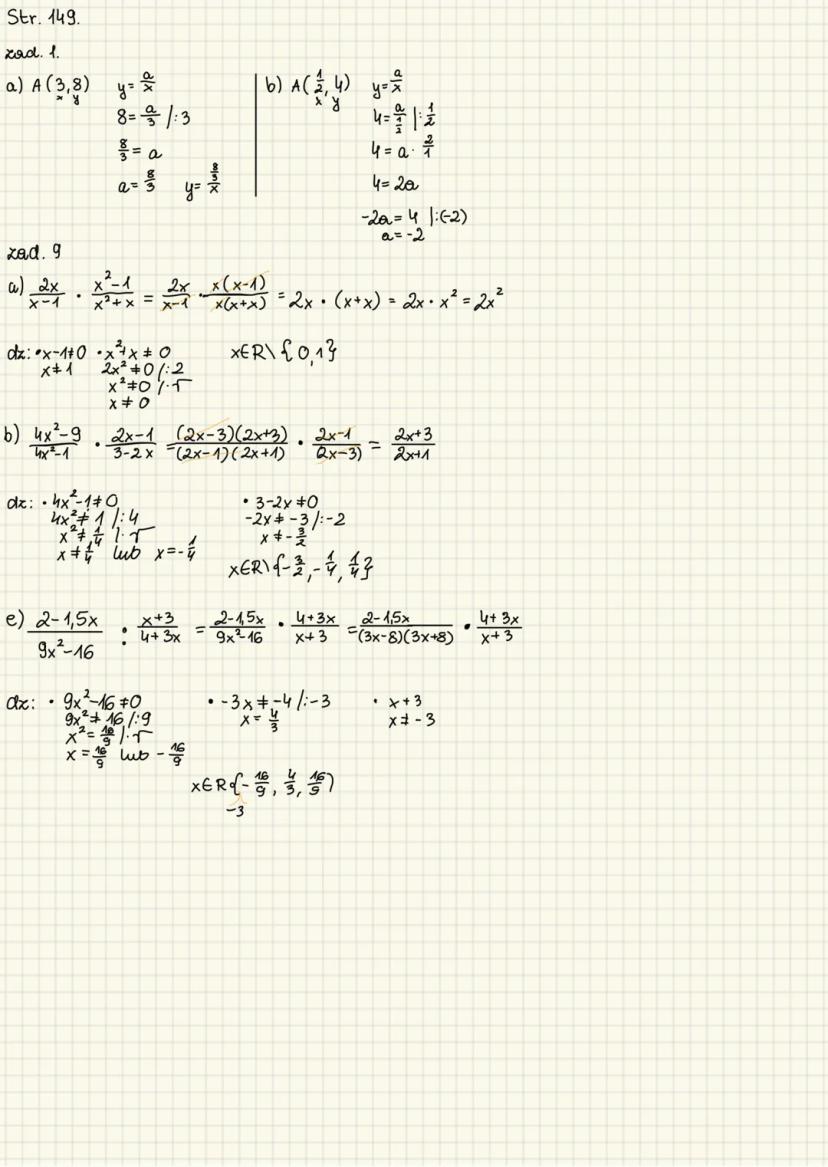 Str. 149.
zad. 1.
a) A(3,8) y=a/x
x y
8=a/3 /:3
8/3=a
a=8/3 y=(8/3)/x
b) A(1/2,4) y=a/x
x y
4=a/(1/2) |:1/2
4=a·2/1
4=2a
-2a=4 |:(-2)
a=-2
zad. 9
a) 2x/(x-1) · (x²-1)/(x²+x) = 2x/(x-1) · x(x-1)/x(x+x) = 2x·(x+x) = 2x·x² = 2x²
dz: •x-1≠0 •x²+x≠0 x∈R\{0,1}
x≠1 2x²≠0/:2
x²≠0 /·√
x≠0
b) (4x²-9)/(4x²-1) · (2x-1)/(3-2x) = (2x-3)(2x+3)/(2x-1)(2x+1) · (2x-1)/(2x-3) = (2x+3)/(2x+1)
dz: •4x²-1≠0 •3-2x≠0
4x²≠1 /:4 -2x≠-3/:-2
x²≠1/4 /·√ x≠-3/2
x≠1/4 lub x=-1/4
x∈R\{-3/2,-1/4,1/4}
e) (2-1,5x)/(9x²-16) : (x+3)/(4+3x) = (2-1,5x)/(9x²-16) · (4+3x)/(x+3) = (2-1,5x)/(3x-8)(3x+8) · (4+3x)/(x+3)
dz: •9x²-16≠0 •-3x≠-4/:-3 •x+3
9x²≠16/:9 x=4/3 x≠-3
x²=16/9 /·√
x=16/9 lub -16/9
x∈R{-16/9, 4/3, 16/9)
-3